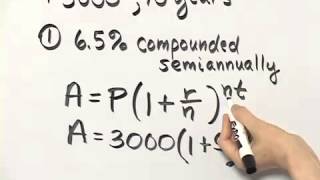 $3000, 10 years
① 6.5% compounded
semiannually
A = P(1 + r/n)^nt
A = 3000(1 +